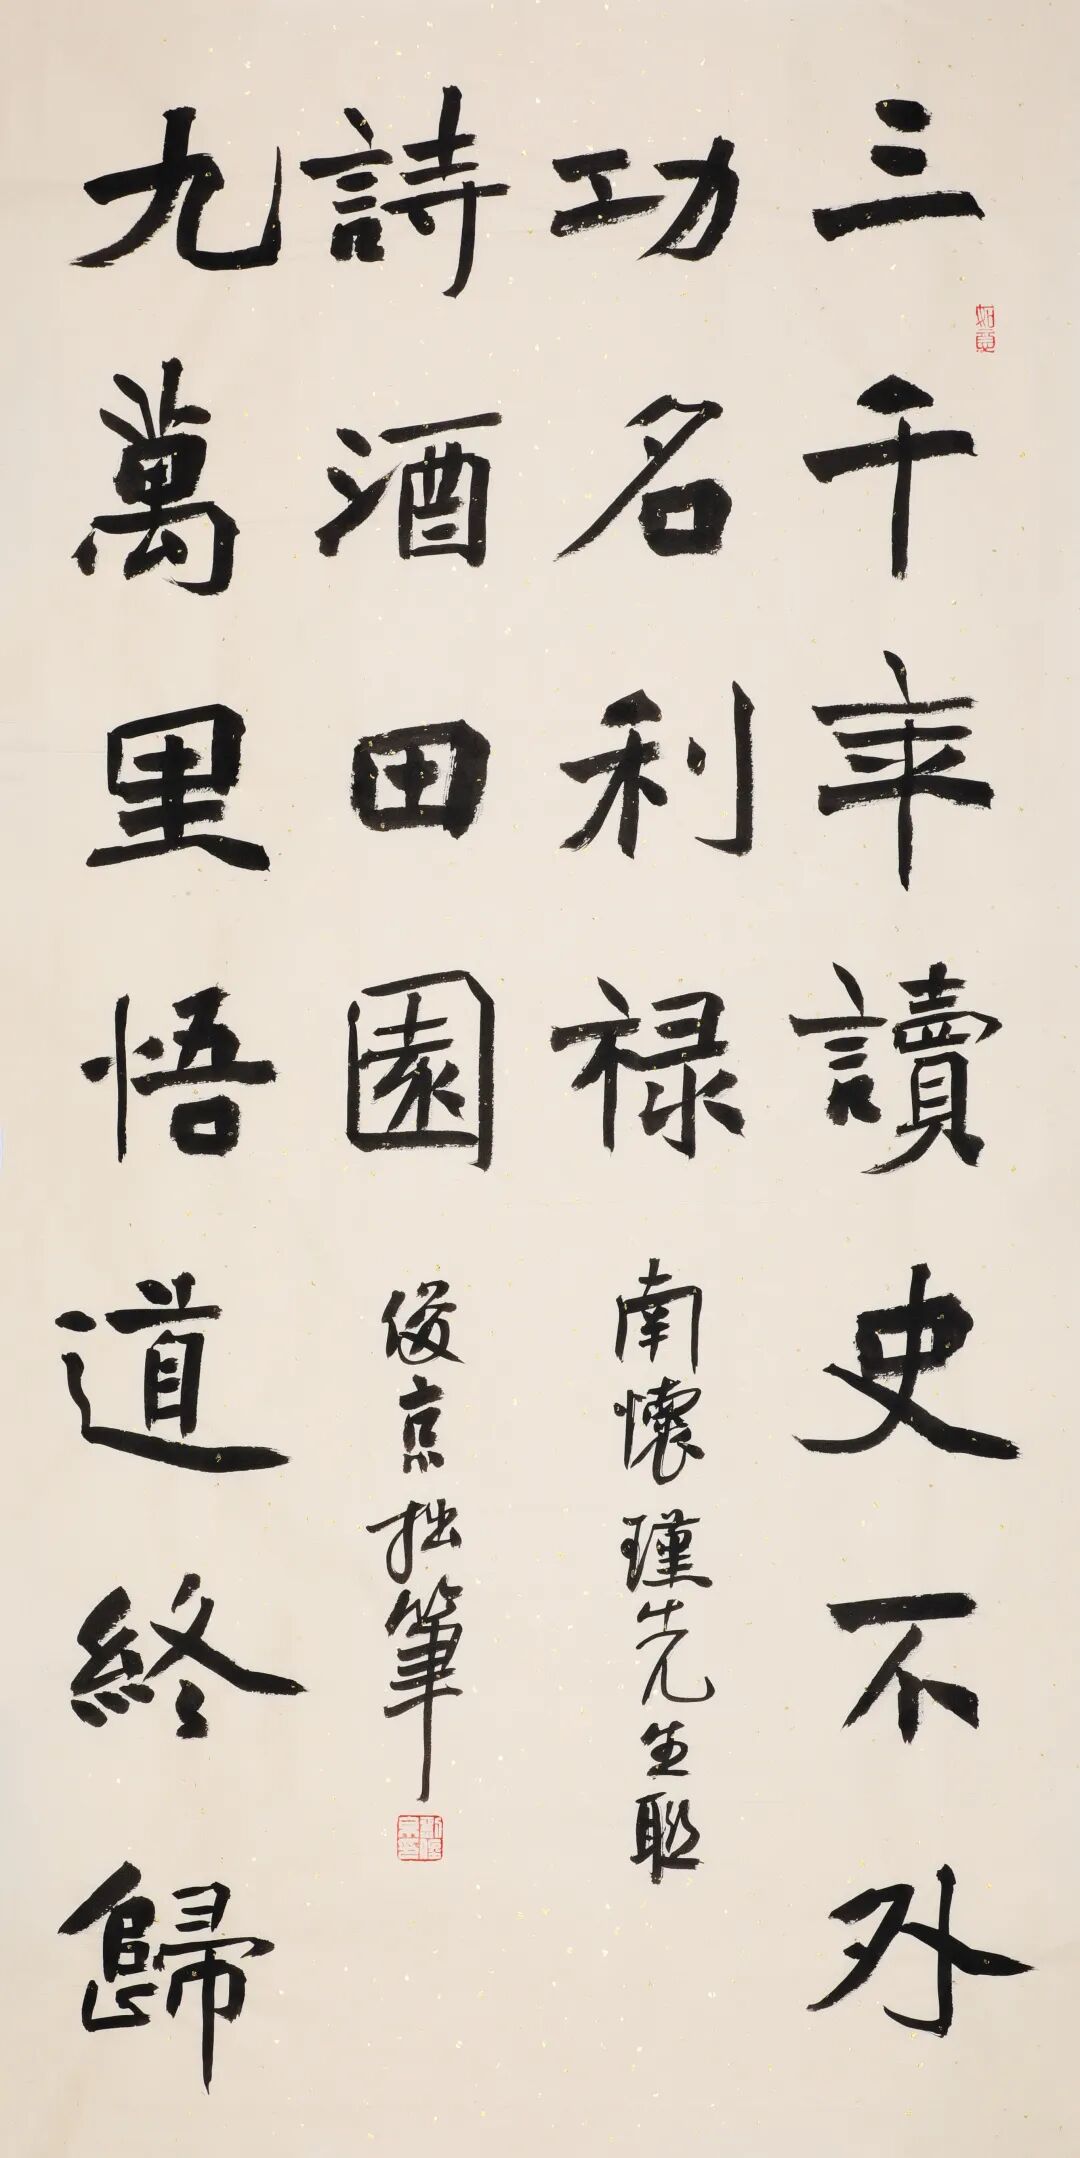 三千年讀史不外
功名利禄
九萬里悟道終歸
詩酒田園
南懷瑾先生聯
俊京拙筆
如意